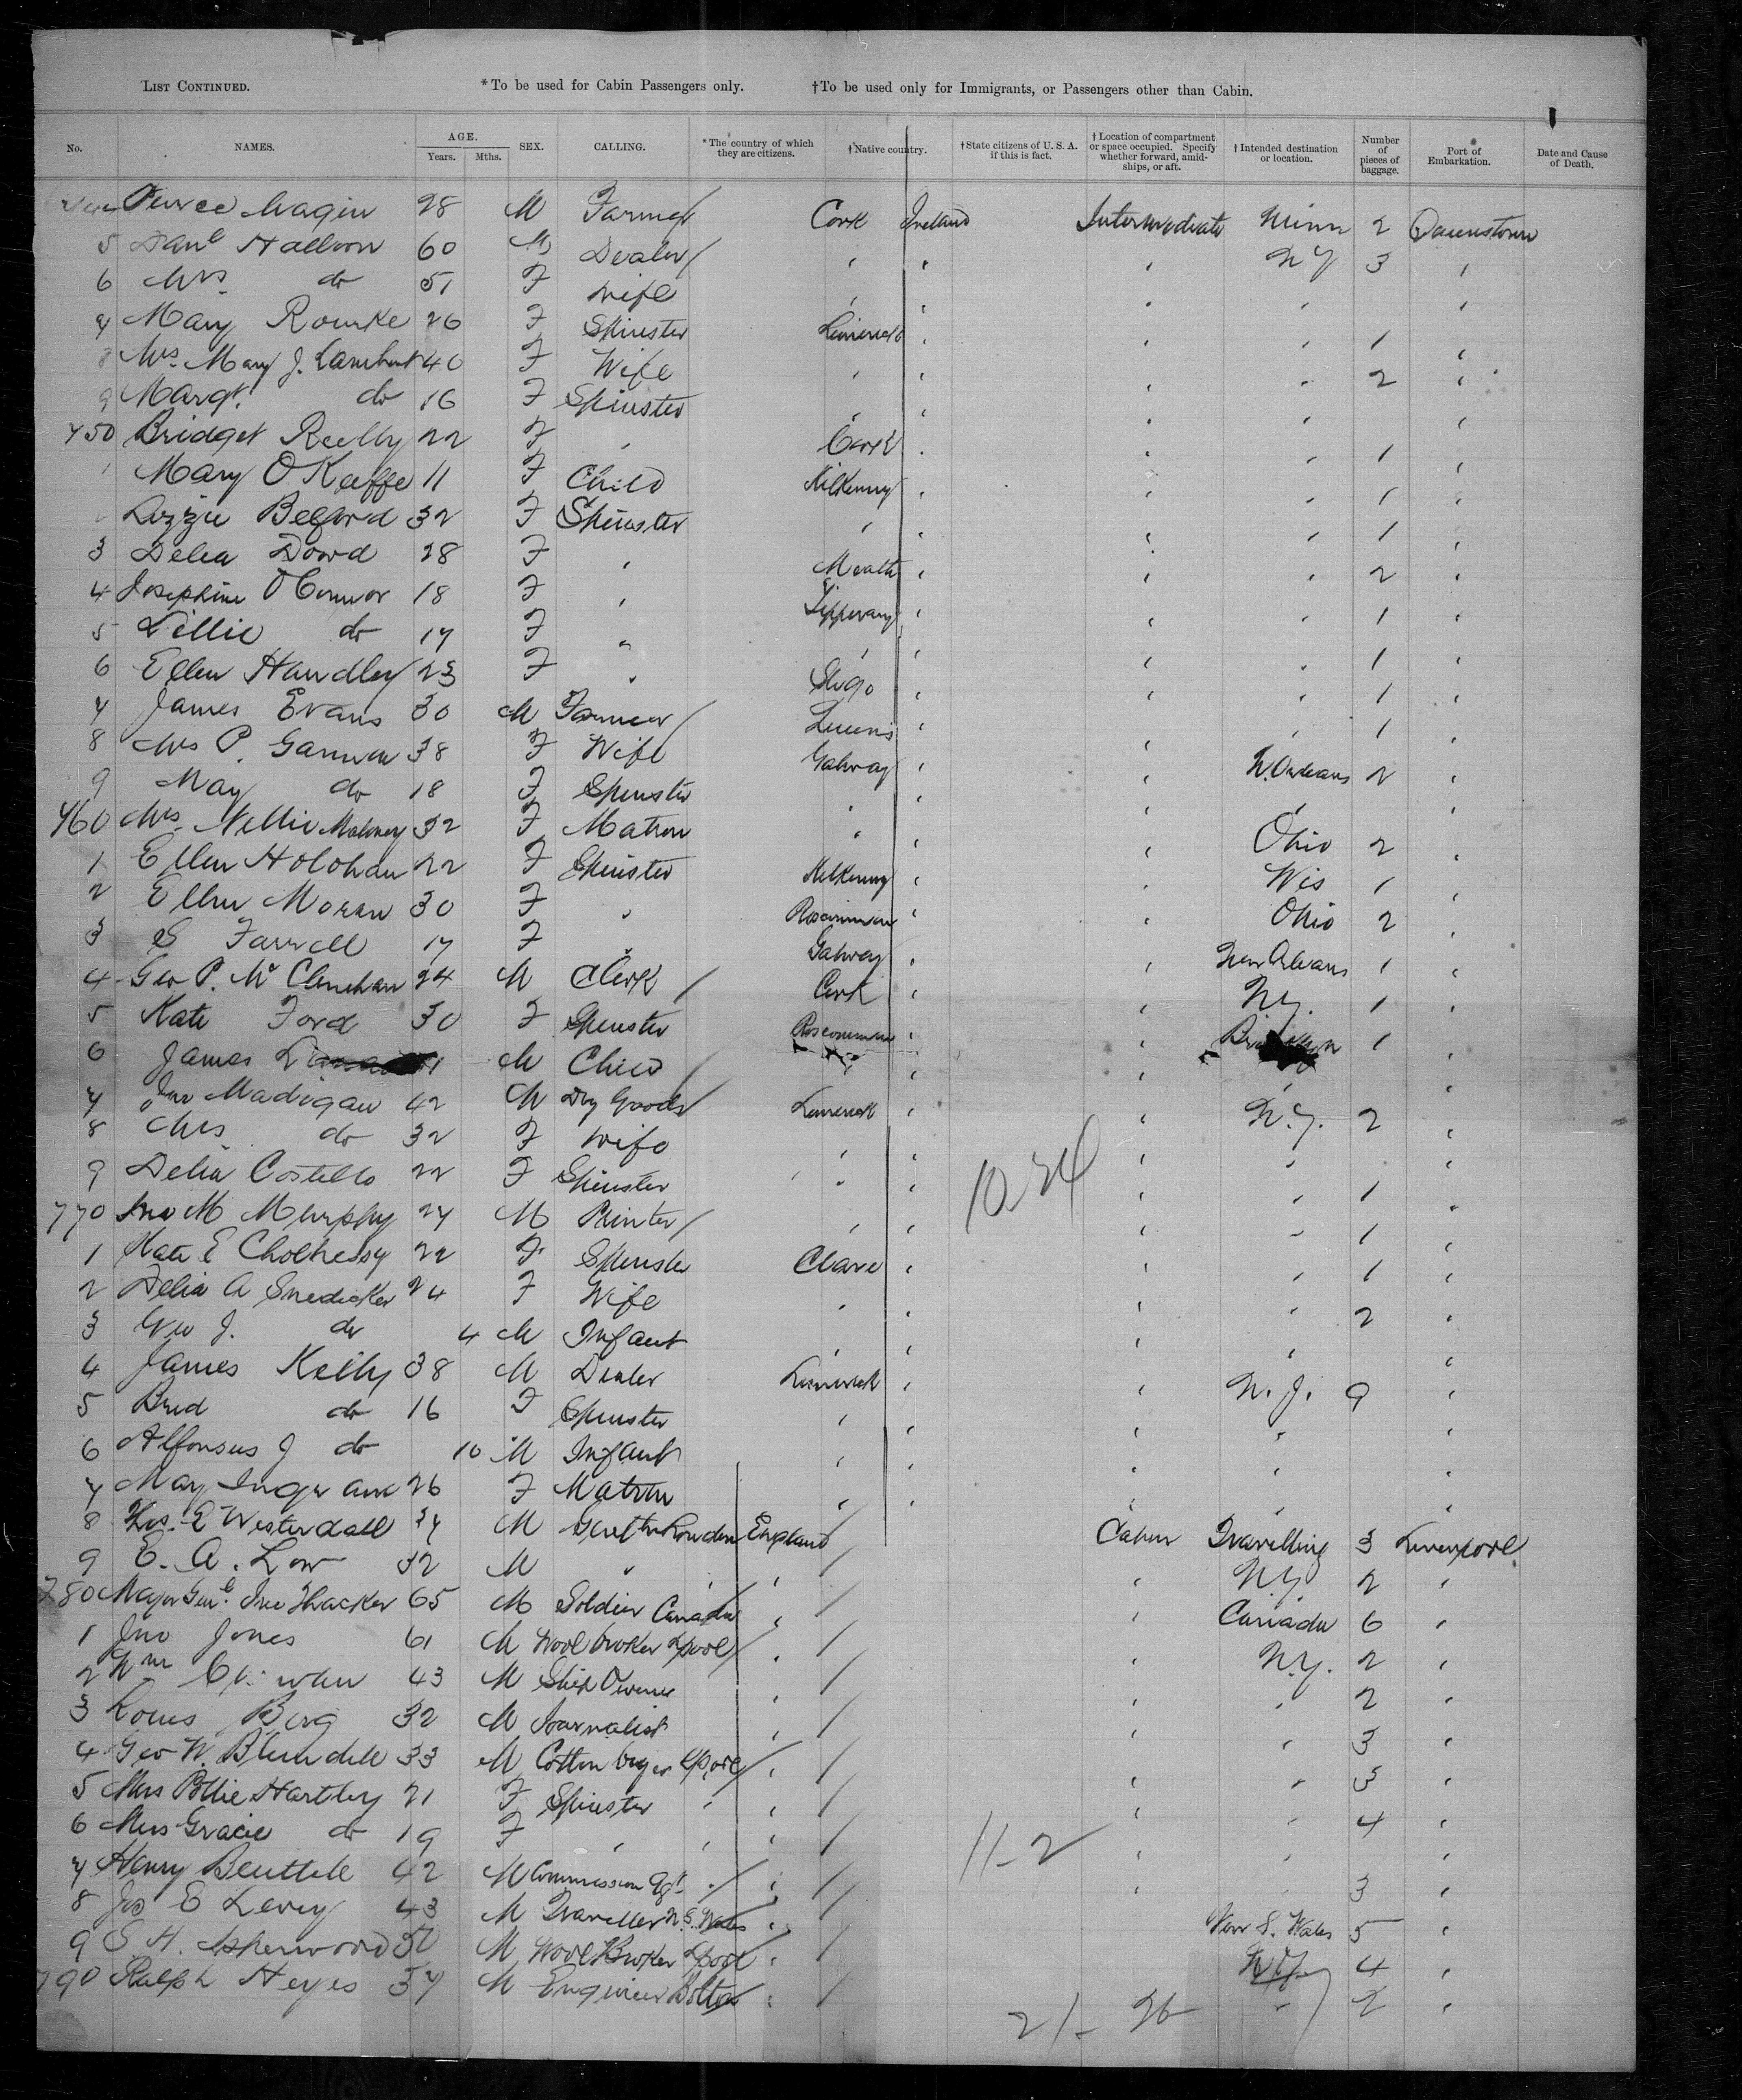 LIST CONTINUED. *To be used for Cabin Passengers only. †To be used only for Immigrants, or Passengers other than Cabin.
No. NAMES. AGE. Years. Mths. SEX. CALLING. *The country of which they are citizens. †Native country. †State citizens of U. S. A. if this is fact. †Location of compartment or space occupied. Specify whether forward, amidships, or aft. †Intended destination or location. Number of pieces of baggage. Port of Embarkation. Date and Cause of Death.
28 M Farmer Cork Ireland Intermediate Minn 2 Queenstown
5 Danl 60 M Dealer " " " N Y 3 "
6 Mrs do 51 F Wife " " " " "
7 Mary Rourke 26 F Spinster Limerick " " " 1 "
8 Mrs. Mary J. Lambert 40 F Wife " " " " 2 "
9 Margt. do 16 F Spinster " " " " "
750 Bridget Reilly 22 F " Cork " " " 1 "
1 Mary O Keeffe 11 F Child Kilkenny " " " 1 "
Lizzie Belford 32 F Spinster " " " " 1 "
3 Delia Dowd 28 F " Meath " " " 2 "
4 Josephine O Connor 18 F " Tipperary " " " 1 "
5 Lillie do 17 F " " " " " 1 "
6 Ellen Handley 23 F " Sligo " " " 1 "
7 James Evans 30 M Farmer " " " 1 "
8 Mrs P. 38 F Wife Galway " " N. Orleans 2 "
9 May do 18 F Spinster " " " "
760 Mrs. Nellie Mahoney 32 F Matron " " Ohio 2 "
1 Ellen Holohan 22 F Spinster Kilkenny " " Wis 1 "
2 Ellen Moran 30 F " Roscommon " " Ohio 2 "
3 S Farrell 17 F " Galway " " New Orleans 1 "
4 Geo P. Mc Clenehan 24 M Clerk Cork " " N.Y. 1 "
5 Kate Ford 30 F Spinster Roscommon " " 1 "
6 James M Child " " " " "
7 Jno Madigan 42 M Dry Goods Limerick " " N.Y. 2 "
8 Mrs. do 32 F Wife " " " " "
9 Delia Costello 22 F Spinster " " " " 1 "
10 24
770 Jno M Murphy 27 M Printer " " " " 1 "
1 Kate E 22 F Spinster Clare " " " 1 "
2 Delia A Snedicker 24 F Wife " " " " 2 "
3 Geo J. do 4 M Infant " " " " "
4 James Kelly 38 M Dealer Limerick " " N. J. 9 "
5 Brid do 16 F Spinster " " " " "
6 Alfonsus J do 10 M Infant " " " " "
7 May 26 F Matron " " " " "
8 E Westerdall M Gent London England Cabin Travelling 3 Liverpool
9 E. A. Low 32 M " " " " N.Y. 2 "
780 Major Genl. Thacker 65 M Soldier Canada " " Canada 6 "
1 Jno Jones 61 M Wool broker Lpool " " N.Y. 2 "
2 Wm 43 M Ship Owner " " 2 "
3 Louis Berg 32 M Journalist " " " 3 "
4 Geo W. Blundell 33 M Cotton buyer Lpool " " " 3 "
5 Miss Pollie Hartley 21 F Spinster " " " " 4 "
6 Miss Gracie do 19 F " " " " " "
11-2
7 Henry Beuttell 42 M Commission Agt. " " " 3 "
8 Jos E Levey 43 M Traveller N. S. Wales " New S. Wales 5 "
9 S. H. Isherwood 50 M Wool Broker Lpool " N Y 4 "
790 Ralph Heyes 57 M Engineer Bolton " " 2 "
21- 26